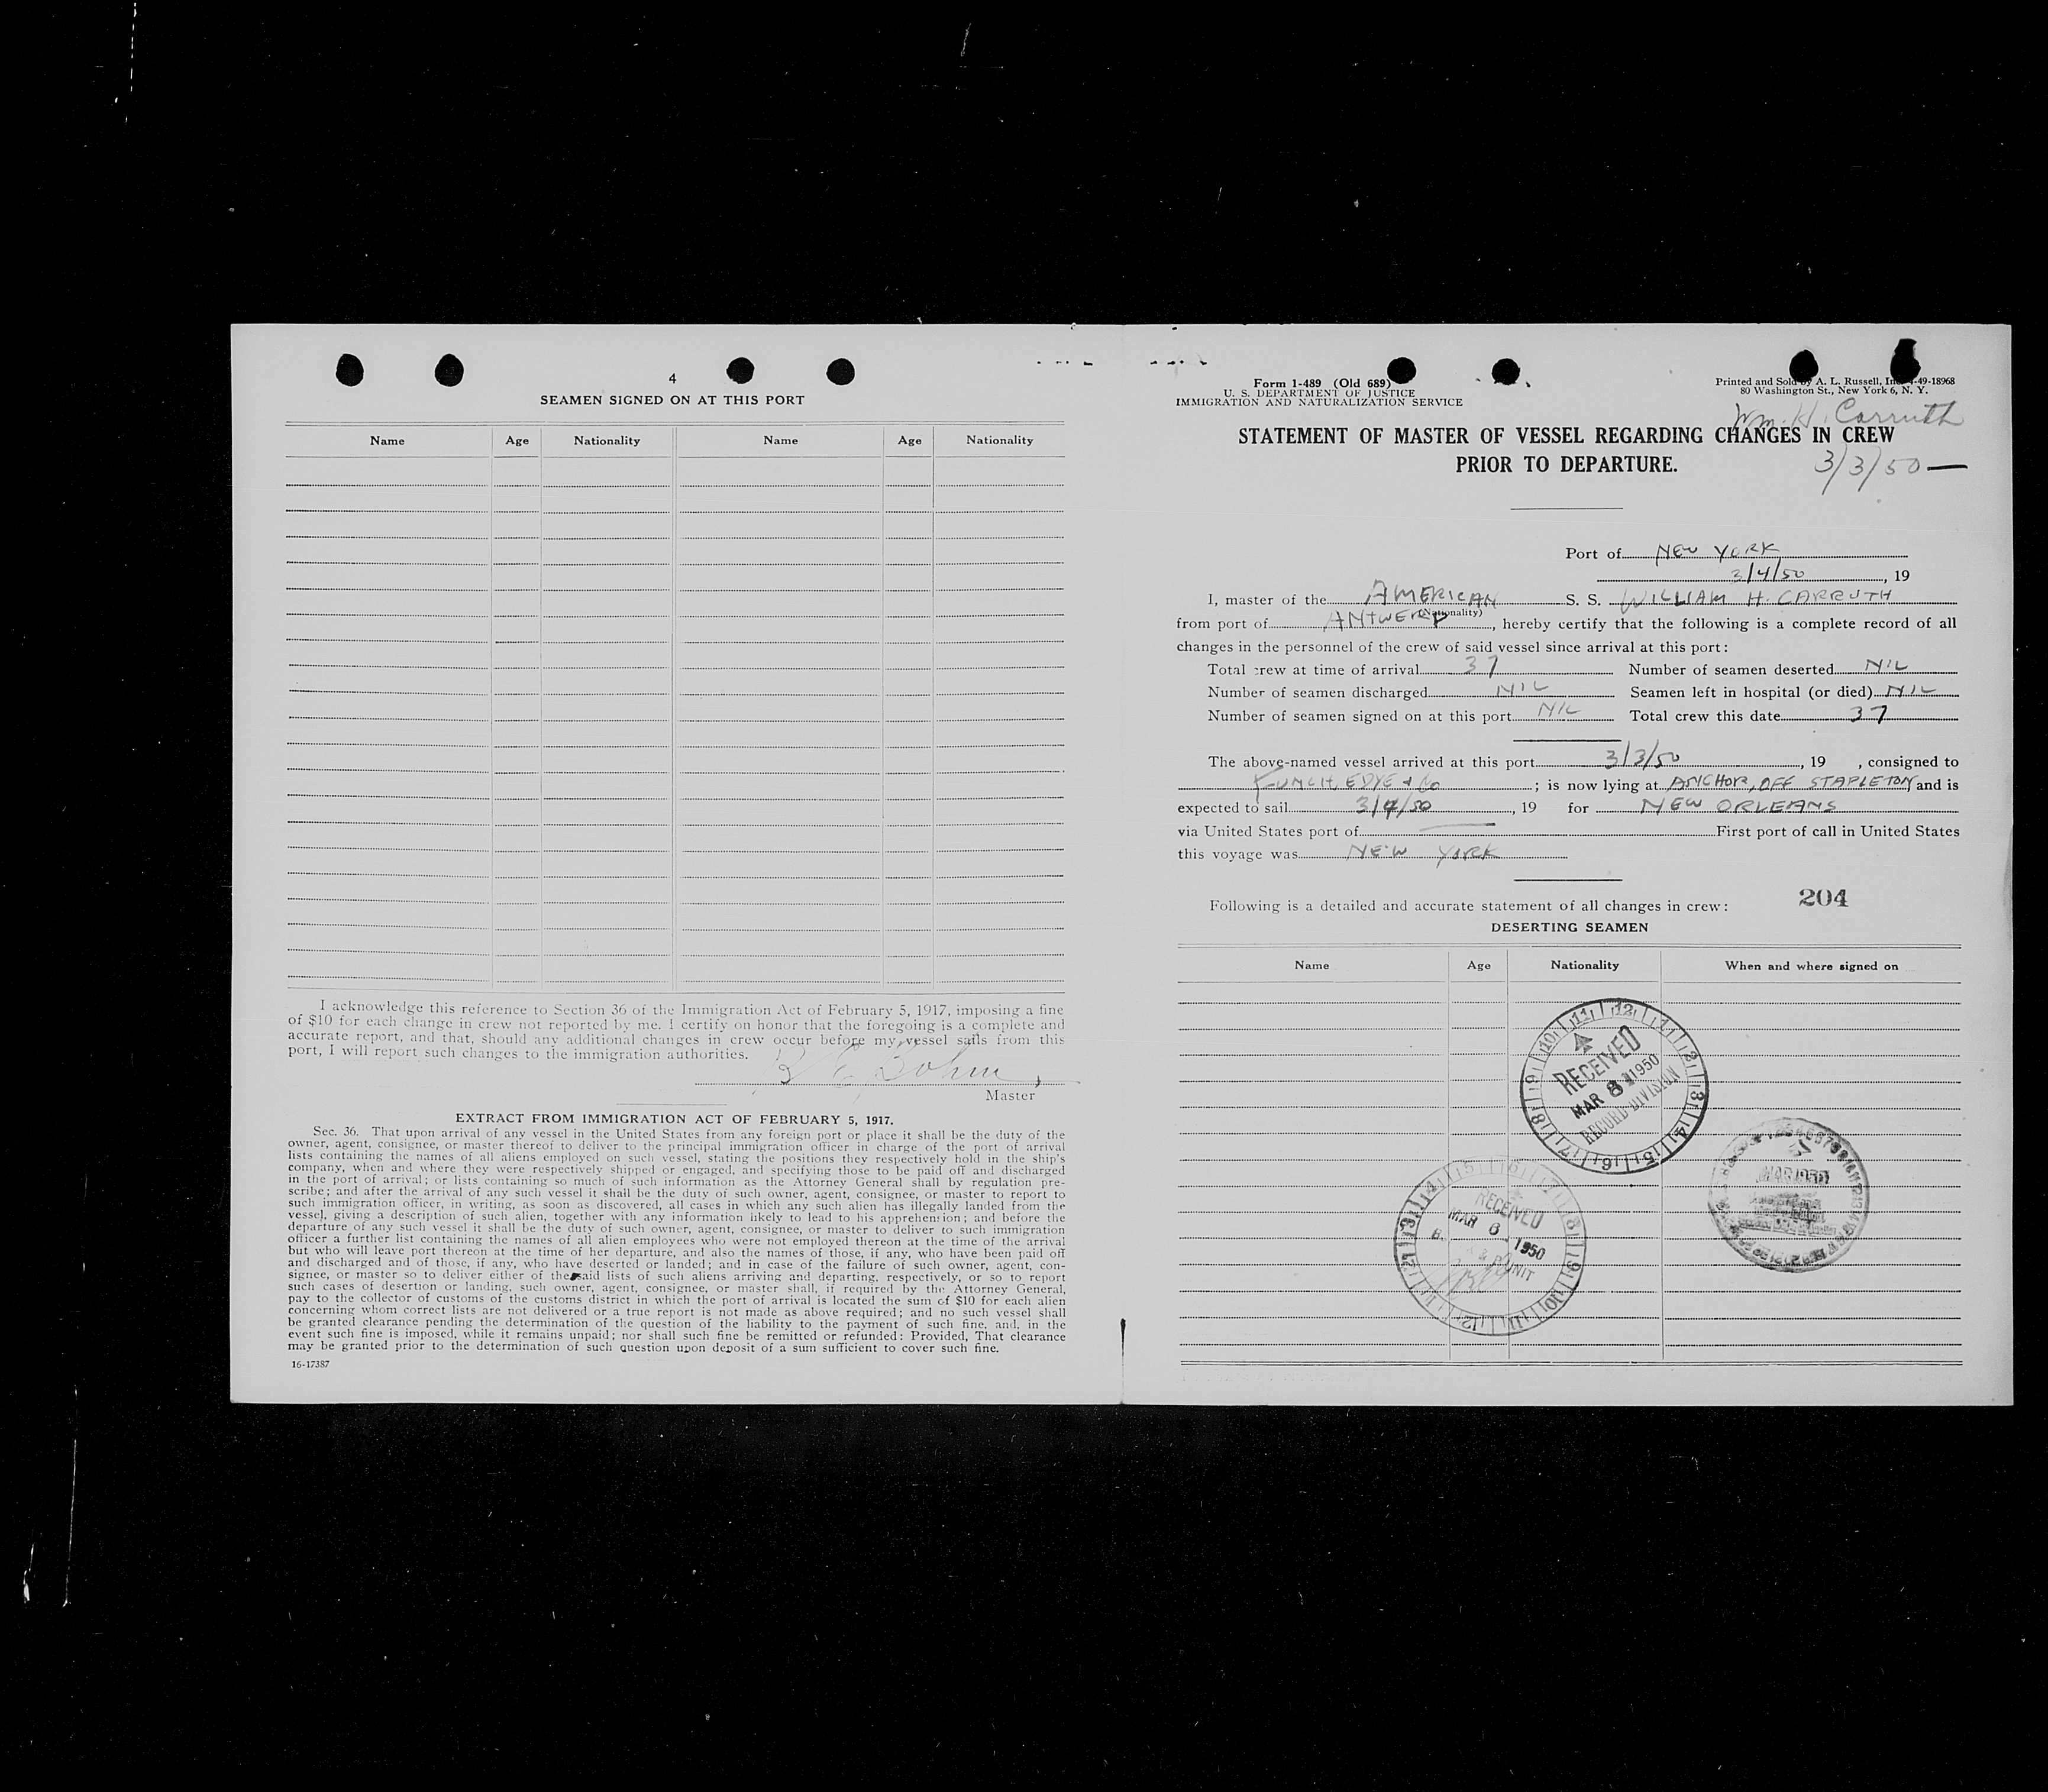 4
SEAMEN SIGNED ON AT THIS PORT
Name Age Nationality Name Age Nationality
I acknowledge this reference to Section 36 of the Immigration Act of February 5, 1917, imposing a fine
of $10 for each change in crew not reported by me. I certify on honor that the foregoing is a complete and
accurate report, and that, should any additional changes in crew occur before my vessel sails from this
port, I will report such changes to the immigration authorities.
Bohm
Master
EXTRACT FROM IMMIGRATION ACT OF FEBRUARY 5, 1917.
Sec. 36. That upon arrival of any vessel in the United States from any foreign port or place it shall be the duty of the
owner, agent, consignee, or master thereof to deliver to the principal immigration officer in charge of the port of arrival
lists containing the names of all aliens employed on such vessel, stating the positions they respectively hold in the ship's
company, when and where they were respectively shipped or engaged, and specifying those to be paid off and discharged
in the port of arrival; or lists containing so much of such information as the Attorney General shall by regulation pre-
scribe; and after the arrival of any such vessel it shall be the duty of such owner, agent, consignee, or master to report to
such immigration officer, in writing, as soon as discovered, all cases in which any such alien has illegally landed from the
vessel, giving a description of such alien, together with any information likely to lead to his apprehension; and before the
departure of any such vessel it shall be the duty of such owner, agent, consignee, or master to deliver to such immigration
officer a further list containing the names of all alien employees who were not employed thereon at the time of the arrival
but who will leave port thereon at the time of her departure, and also the names of those, if any, who have been paid off
and discharged and of those, if any, who have deserted or landed; and in case of the failure of such owner, agent, con-
signee, or master so to deliver either of the said lists of such aliens arriving and departing, respectively, or so to report
such cases of desertion or landing, such owner, agent, consignee, or master shall, if required by the Attorney General,
pay to the collector of customs of the customs district in which the port of arrival is located the sum of $10 for each alien
concerning whom correct lists are not delivered or a true report is not made as above required; and no such vessel shall
be granted clearance pending the determination of the question of the liability to the payment of such fine, and, in the
event such fine is imposed, while it remains unpaid; nor shall such fine be remitted or refunded: Provided, That clearance
may be granted prior to the determination of such question upon deposit of a sum sufficient to cover such fine.
16-17387
Form 1-489 (Old 689)
U. S. DEPARTMENT OF JUSTICE
IMMIGRATION AND NATURALIZATION SERVICE
Printed and Sold by A. L. Russell, Inc. -49-18968
80 Washington St., New York 6, N. Y.
Wm. H. Carruth
STATEMENT OF MASTER OF VESSEL REGARDING CHANGES IN CREW
PRIOR TO DEPARTURE.
3/3/50
Port of NEW YORK
3/4/50, 19
I, master of the AMERICAN S. S. WILLIAM H. CARRUTH
(Nationality)
from port of ANTWERP, hereby certify that the following is a complete record of all
changes in the personnel of the crew of said vessel since arrival at this port:
Total crew at time of arrival 37 Number of seamen deserted NIL
Number of seamen discharged NIL Seamen left in hospital (or died) NIL
Number of seamen signed on at this port NIL Total crew this date 37
The above-named vessel arrived at this port 3/3/50, 19 , consigned to
FUNCH, EDYE & Co; is now lying at ANCHOR, OFF STAPLETON and is
expected to sail 3/4/50, 19 for NEW ORLEANS
via United States port of First port of call in United States
this voyage was NEW YORK
Following is a detailed and accurate statement of all changes in crew: 204
DESERTING SEAMEN
Name Age Nationality When and where signed on
RECEIVED
MAR 8 1950
RECORD DIVISION
RECEIVED
MAR 6 1950
UNIT
MAR 1950